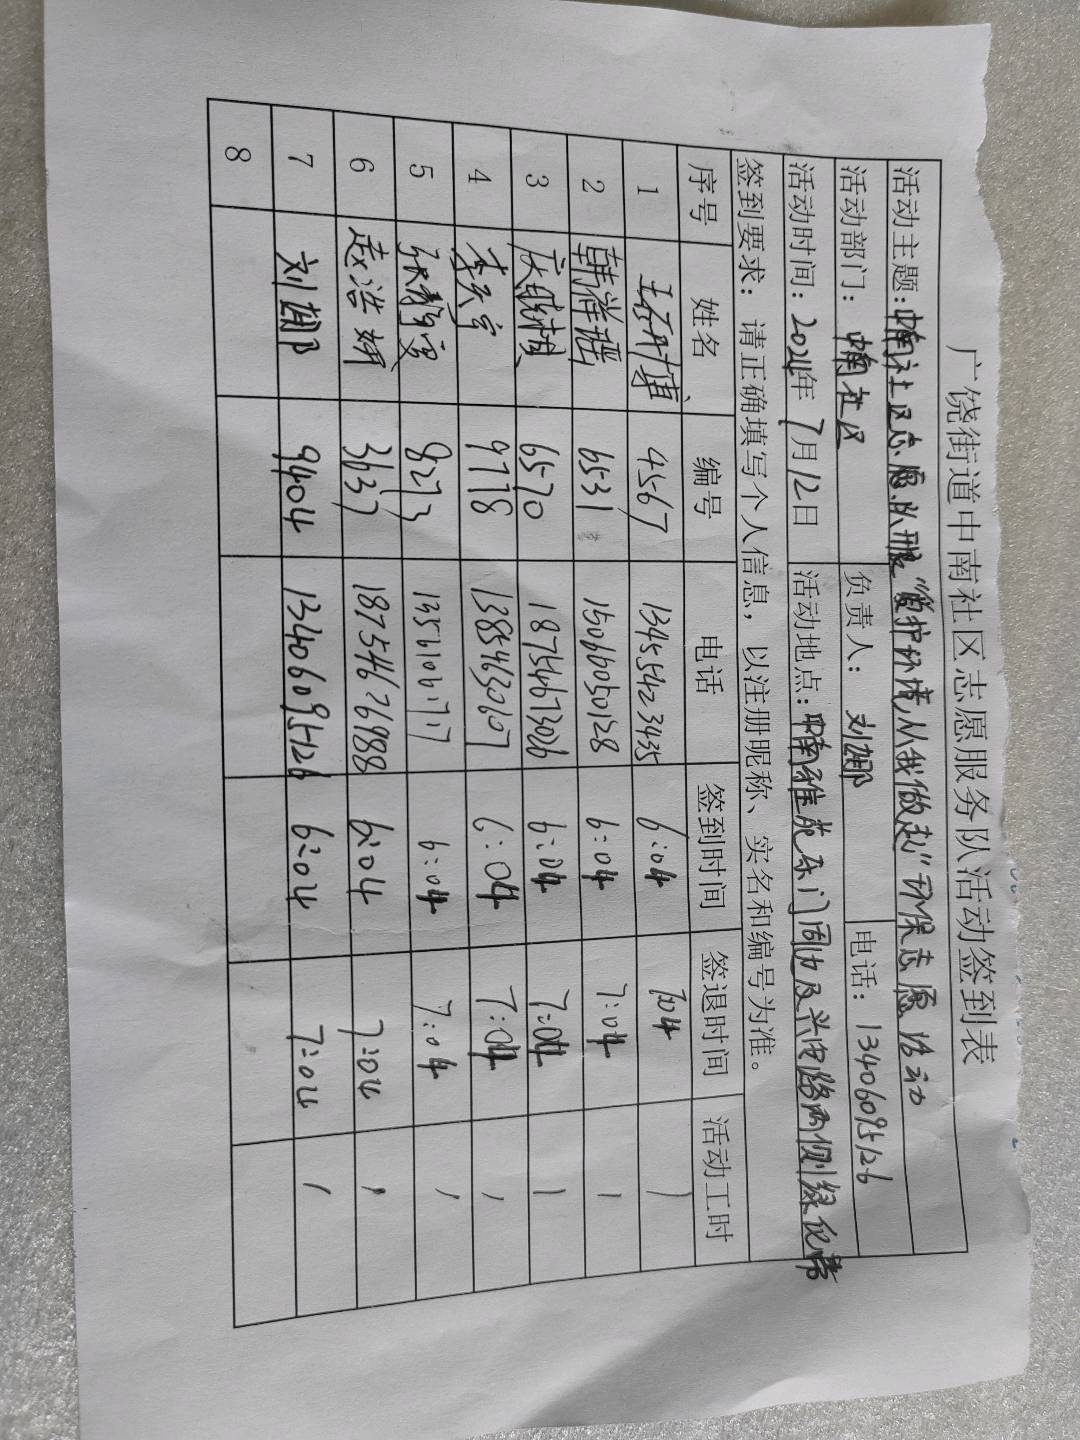 广饶街道中南社区志愿服务队活动签到表
活动主题：中南社区志愿队服“爱护环境从我做起”环保志愿活动
活动部门：中南社区 负责人：刘娜 电话：13406095126
活动时间：2024年7月12日 活动地点：中南雅苑东门周边及兴中路两侧绿化带
签到要求：请正确填写个人信息，以注册昵称、实名和编号为准。
序号 姓名 编号 电话 签到时间 签退时间 活动工时
1 4567 13455423435 6:04 7:04 1
2 韩祥瑶 6531 15066050128 6:04 7:04 1
3 6570 18754673026 6:04 7:04 1
4 李天宇 9778 13854630607 6:04 7:04 1
5 张静雯 8273 13561061717 6:04 7:04 1
6 赵浩妍 3637 18754676988 6:04 7:04 1
7 刘娜 9404 13406095126 6:04 7:04 1
8